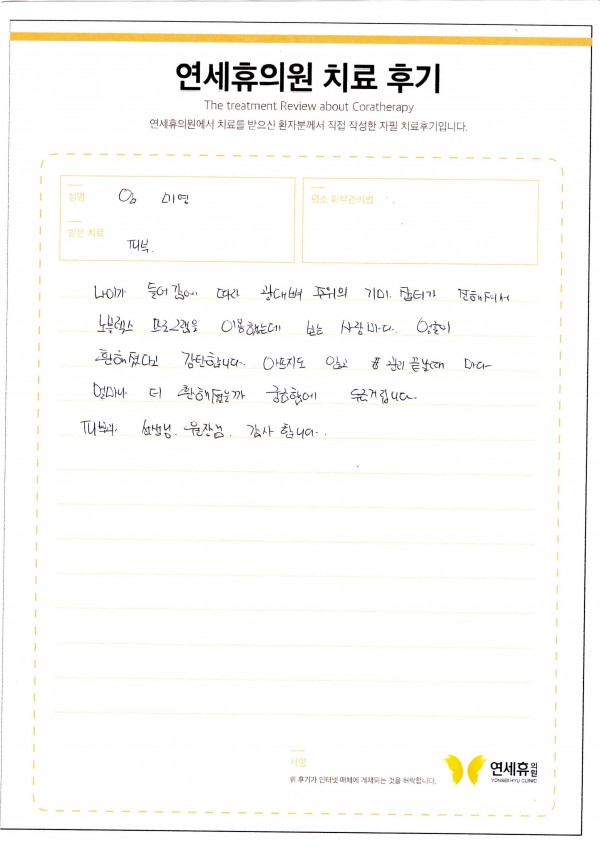 연세휴의원 치료 후기
The treatment Review about Coratherapy
연세휴의원에서 치료를 받으신 환자분께서 직접 작성한 자필 치료후기입니다.
성명 임 미연
평소 피부관리법
받은 치료
피부.
나이가 들어감에 따라 광대뼈 부위의 기미. 잡티가 진해져서
노블렉스 프로그램을 이용했는데 보는 사람마다. 얼굴이
환해졌다고 감탄합니다. 아프지도 않고 관리 끝날때 마다
얼마나 더 환해졌는가 궁금함에 두근거립니다.
피부과 선생님. 원장님. 감사 합니다.
서명
위 후기가 인터넷 매체에 게재되는 것을 허락합니다.
연세휴의원
YONSEI HYU CLINIC